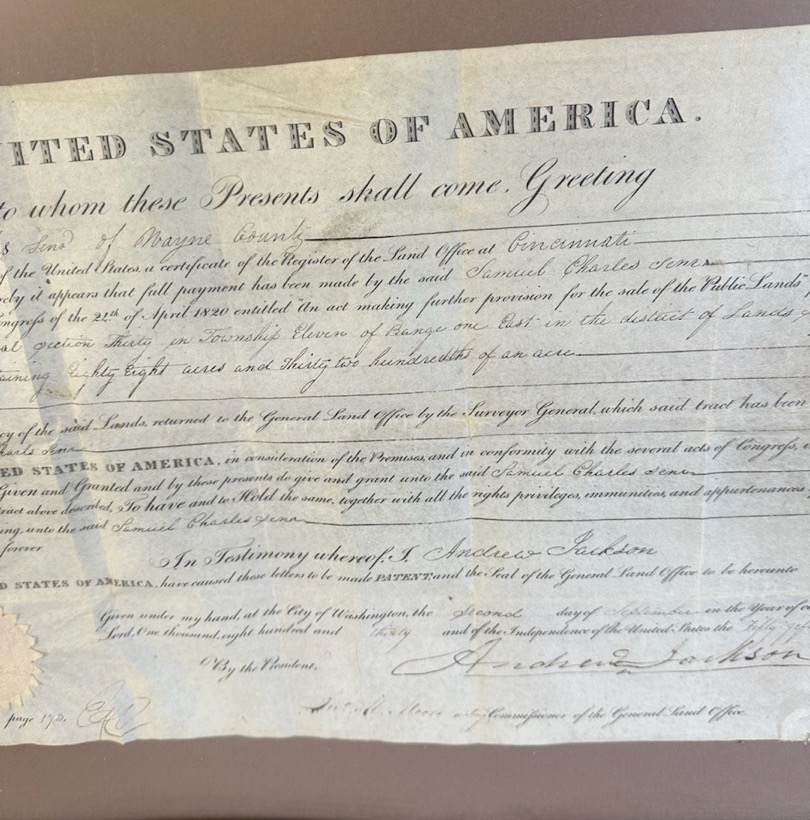 ITED STATES OF AMERICA.
to whom these Presents shall come, Greeting
s Senr of Wayne County
of the United States, a certificate of the Register of the Land Office at Cincinnati
it appears that full payment has been made by the said Samuel Charles Senr
ngress of the 24th of April 1820 entitled "An act making further provision for the sale of the Public Lands"
al section Thirty in Township Eleven of Range one East in the district of Lands
aining Eighty Eight acres and Thirty two hundredths of an acre
cy of the said Lands, returned to the General Land Office by the Surveyor General, which said tract has been
harls Senr
ED STATES OF AMERICA, in consideration of the Premises, and in conformity with the several acts of Congress,
Given and Granted and by these presents do give and grant unto the said Samuel Charles Senr
ract above described, To have and to Hold the same, together with all the rights privileges, immunities, and appurtenances
ng, unto the said Samuel Charles Senr
forever.
In Testimony whereof, I, Andrew Jackson
D STATES OF AMERICA, have caused these letters to be made PATENT and the Seal of the General Land Office to be hereunto
Given under my hand, at the City of Washington, the Second day of September in the Year of
Lord, One thousand, eight hundred and thirty and of the Independence of the United States the Fifty
By the President,
Andrew Jackson
Commissioner of the General Land Office
page 172